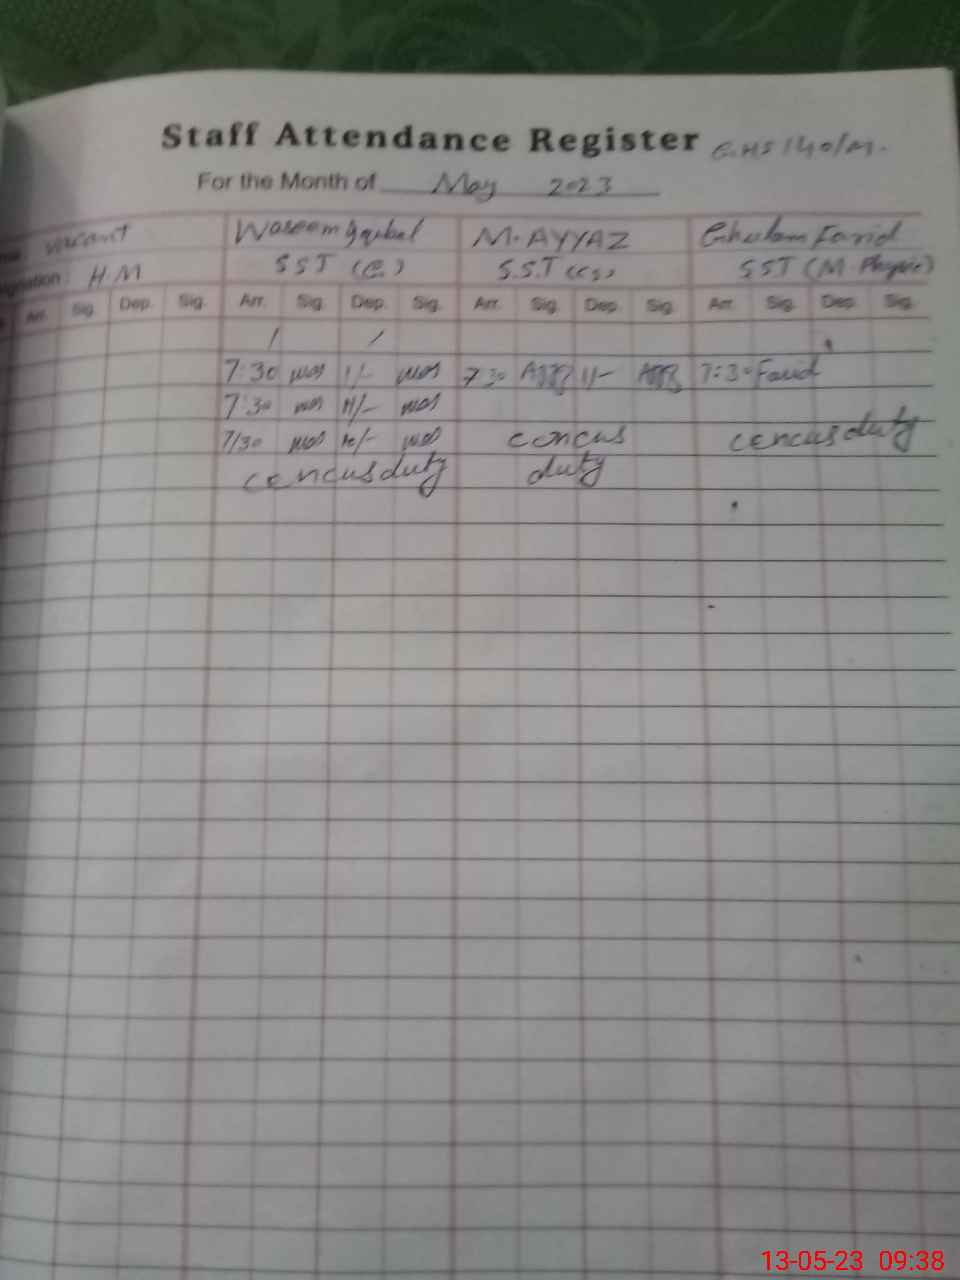 Staff Attendance Register G.HS 140/M.
For the Month of May 2023
Vacant Waseem Iqubal M. AYYAZ Ghulam Farid
H.M SST (E.) S.S.T (CS) SST (M. Physic)
Arr. Sig. Dep. Sig. Arr. Sig. Dep. Sig. Arr. Sig. Dep. Sig. Arr. Sig. Dep. Sig.
7:30 was 1/- was 7:30 1/- 7:30 Farid
7:30 was was
7/30 was was concus cencus duty
cencus duty duty
13-05-23 09:38